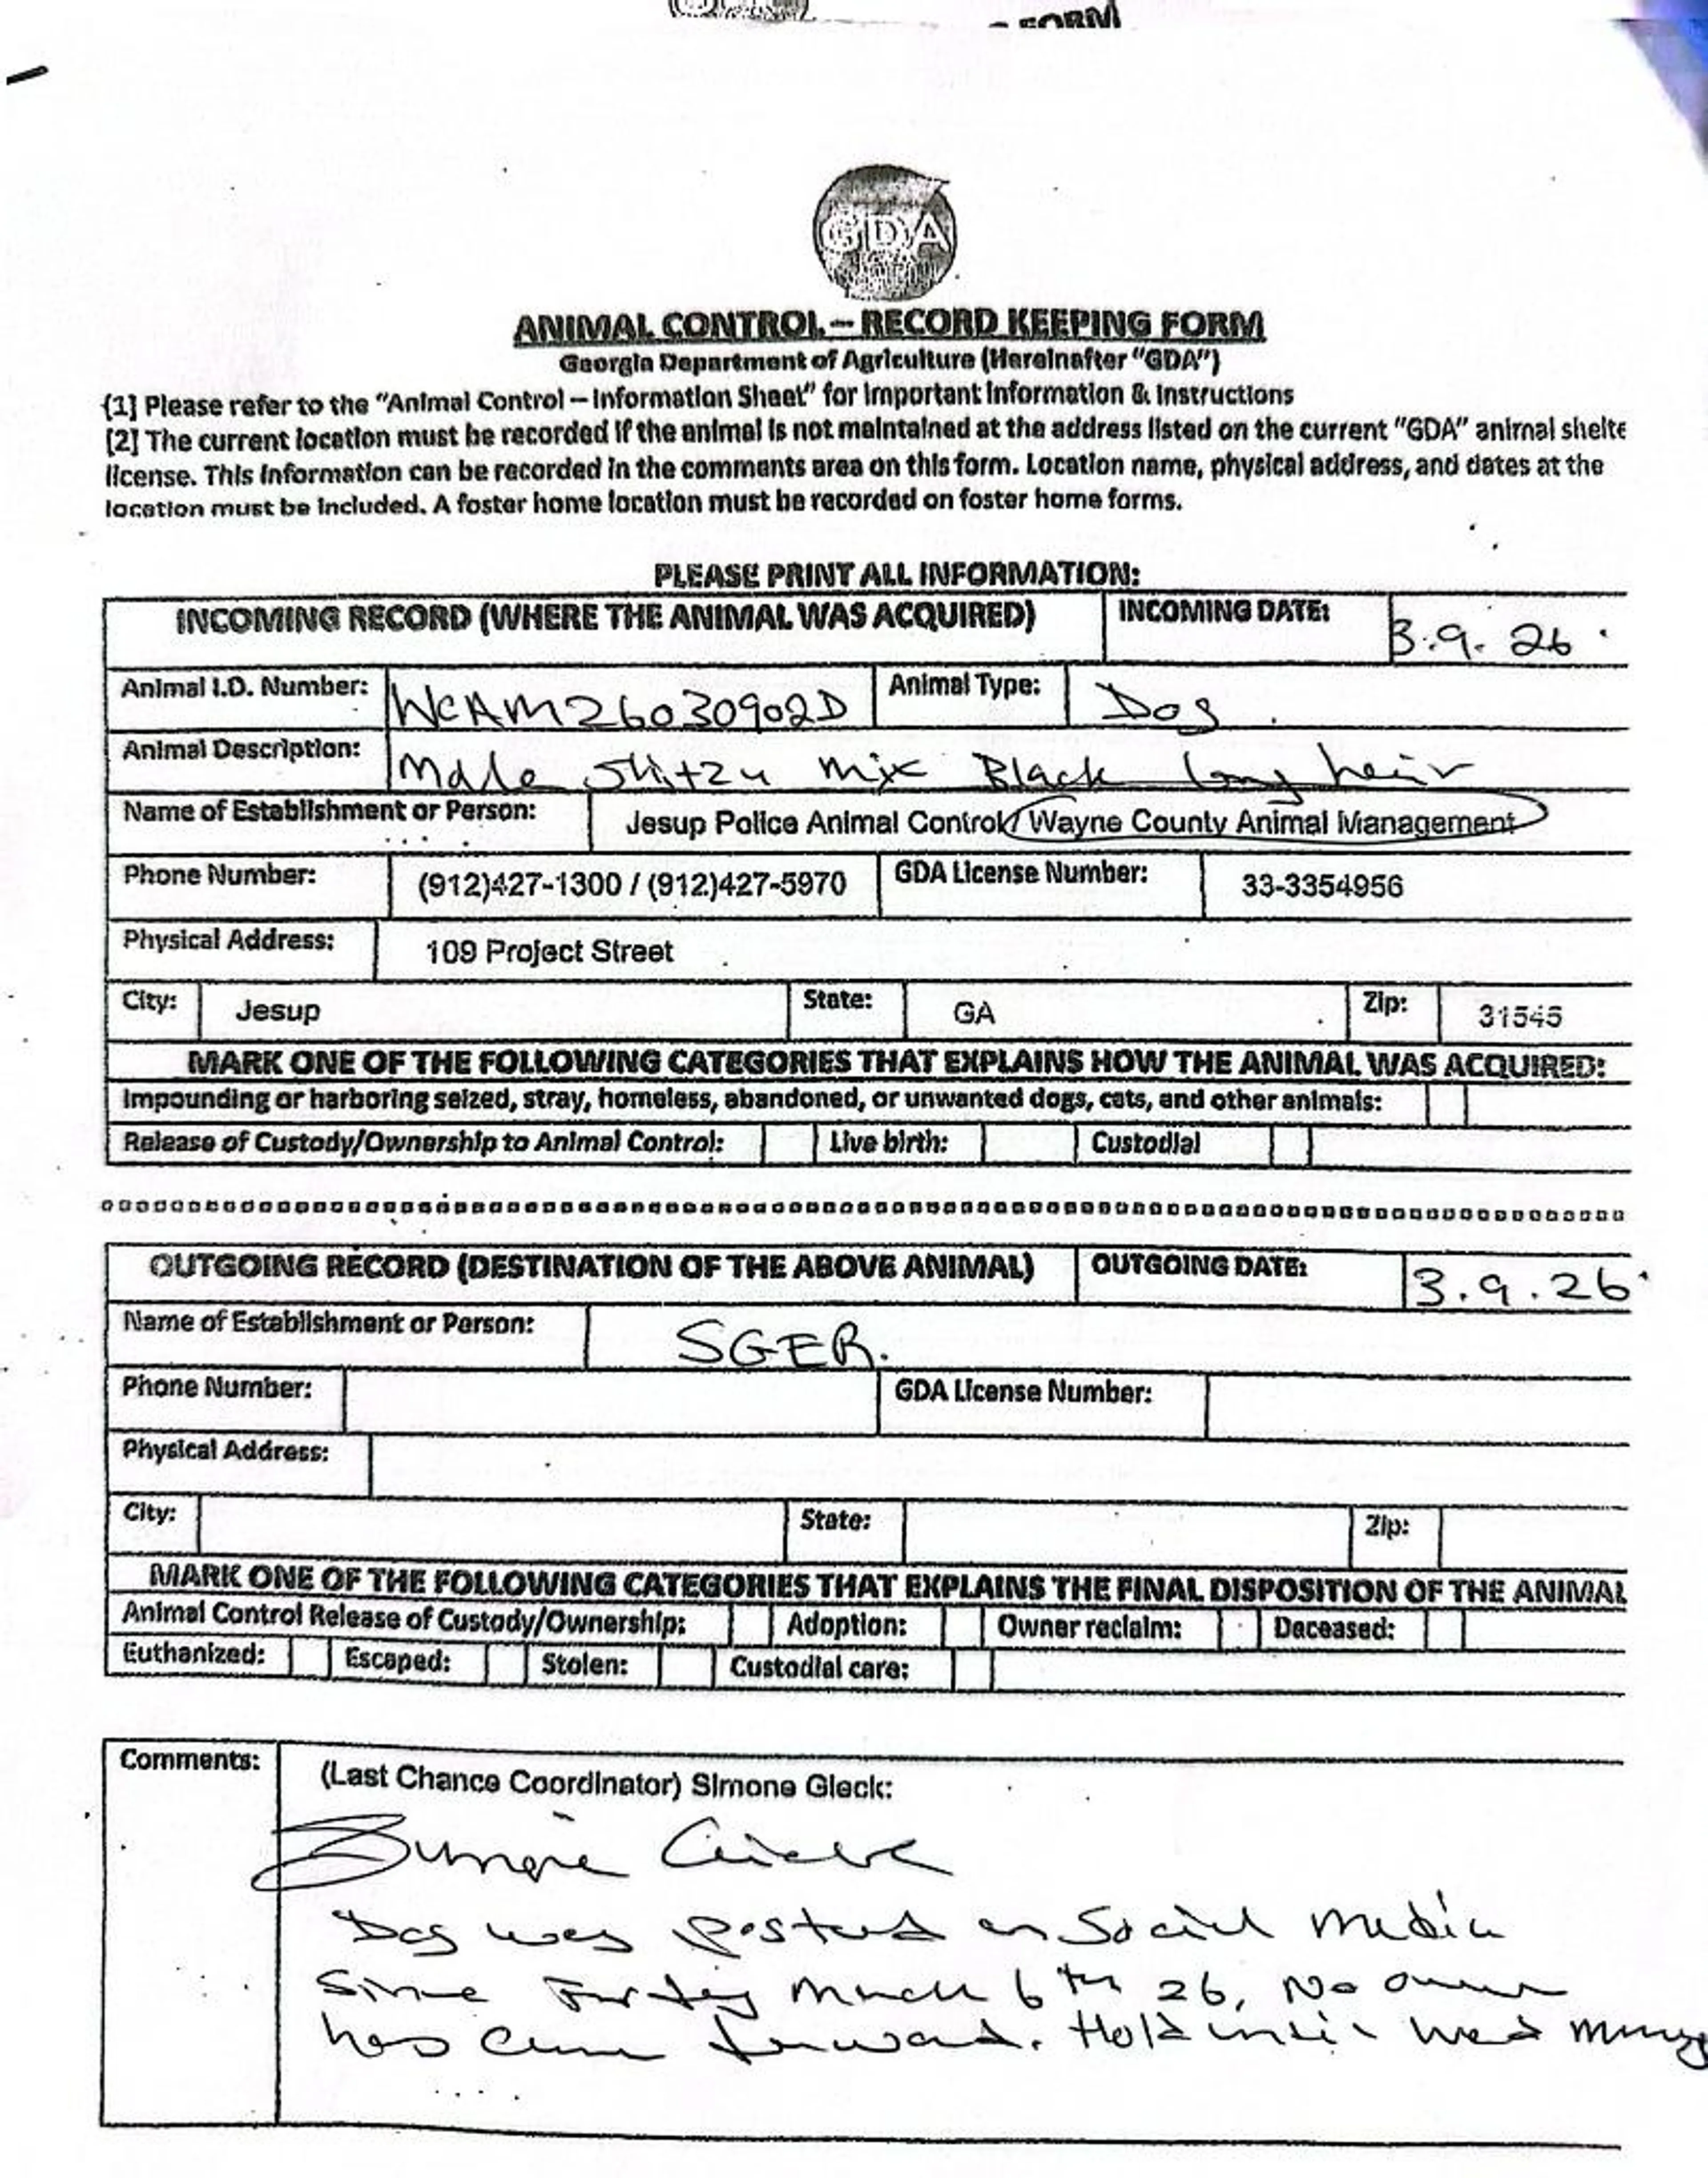 FORM
GDA
ANIMAL CONTROL – RECORD KEEPING FORM
Georgia Department of Agriculture (Hereinafter "GDA")
[1] Please refer to the "Animal Control – Information Sheet" for Important Information & Instructions
[2] The current location must be recorded if the animal is not maintained at the address listed on the current "GDA" animal shelte
license. This information can be recorded in the comments area on this form. Location name, physical address, and dates at the
location must be included. A foster home location must be recorded on foster home forms.
PLEASE PRINT ALL INFORMATION:
INCOMING RECORD (WHERE THE ANIMAL WAS ACQUIRED) INCOMING DATE: 3.9.26
Animal I.D. Number: WCAM26030902D Animal Type: Dog
Animal Description: Male Shitzu mix Black long heir
Name of Establishment or Person: Jesup Police Animal Control/ Wayne County Animal Management
Phone Number: (912)427-1300 / (912)427-5970 GDA License Number: 33-3354956
Physical Address: 109 Project Street
City: Jesup State: GA Zip: 31545
MARK ONE OF THE FOLLOWING CATEGORIES THAT EXPLAINS HOW THE ANIMAL WAS ACQUIRED:
Impounding or harboring seized, stray, homeless, abandoned, or unwanted dogs, cats, and other animals:
Release of Custody/Ownership to Animal Control: Live birth: Custodial
OUTGOING RECORD (DESTINATION OF THE ABOVE ANIMAL) OUTGOING DATE: 3.9.26
Name of Establishment or Person: SGER.
Phone Number: GDA License Number:
Physical Address:
City: State: Zip:
MARK ONE OF THE FOLLOWING CATEGORIES THAT EXPLAINS THE FINAL DISPOSITION OF THE ANIMAL
Animal Control Release of Custody/Ownership: Adoption: Owner reclaim: Deceased:
Euthanized: Escaped: Stolen: Custodial care:
Comments: (Last Chance Coordinator) Simone Gieck:
Simone Gieck
Dog was posted on Social Media
Since Friday March 6th 26, No owner
has come forward. Hold until Wed